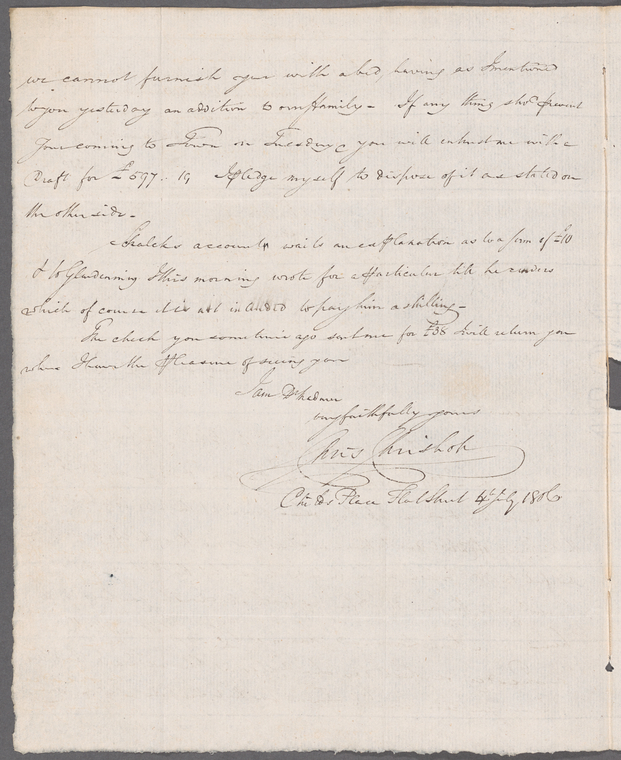 we cannot furnish you with a bed, having as I mentiond
to you yesterday an addition to our family - If any thing shod prevent
your coming to Town on Tuesday you will intrust me with a
Draft for £597 .. 19 I pledge myself to dispose of it as stated on
the other side -
accounts waits an explanation as to a sum of £10
& to Glendenning I this morning wrote for a particular till he renders
which of course it is not intended to pay him a shilling -
The check you sometime ago sent me for £38 I will return you
when I have the pleasure of seeing you
I am Dr Madam
very faithfully yours
Chrisr
Place Fleet Street 4 July 1806